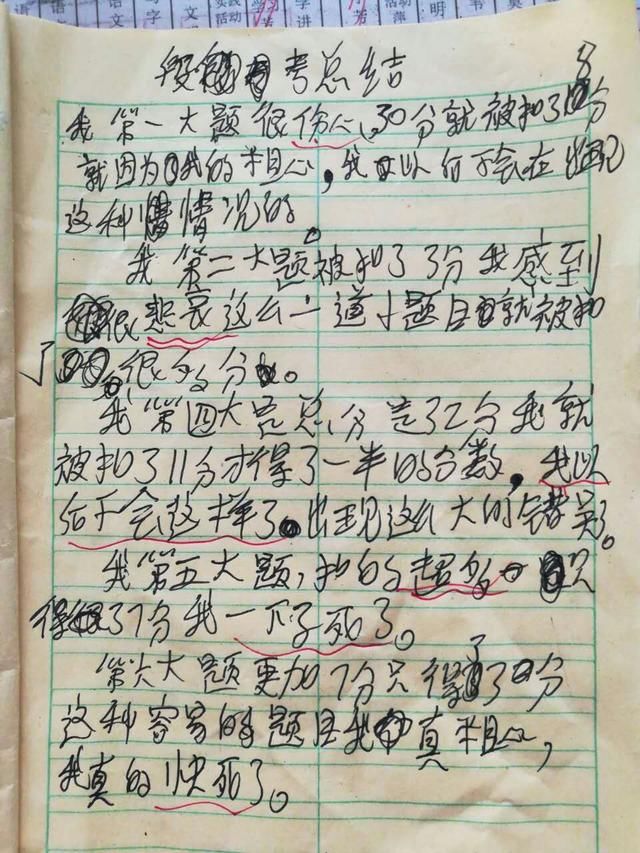 语 语 语 文 实践活动 写字 学 科 讲 语 活动 萍 明 书 奥
段考总结
我第一大题很伤心,30分就被扣了8分
就因为我的粗心,我以后不会在出现
这种情况的。
我第二大题被扣了3分我感到
很悲哀这么一道小题目就被扣
了很多分。
我第四大题总分是22分我就
被扣了11分才得了一半的分数,我以
后不会这样了。出现这么大的错误。
我第五大题,扣的超多只
得了7分我一下子死了。
第六大题更加7分只得了分
这种容易的题目我真粗心,
我真的快死了。